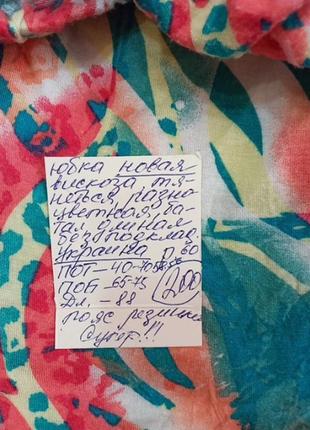 юбка новая
вискоза, тя-
неться, разно-
цветная, ба-
тал, длиная
без подклад.
Украина р 60
ПОТ-40-70
ПОБ-65-75
Дл. - 88 200
пояс резинка
Супер!!!